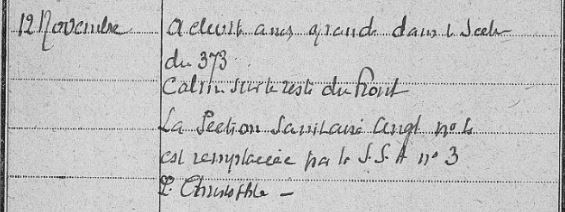 12 Novembre
Activité assez grande dans le Secteur
du 373
Calme sur le reste du front
La Section Sanitaire Angl no 4
est remplacée par la S.S.A no 3
P. Christophle –